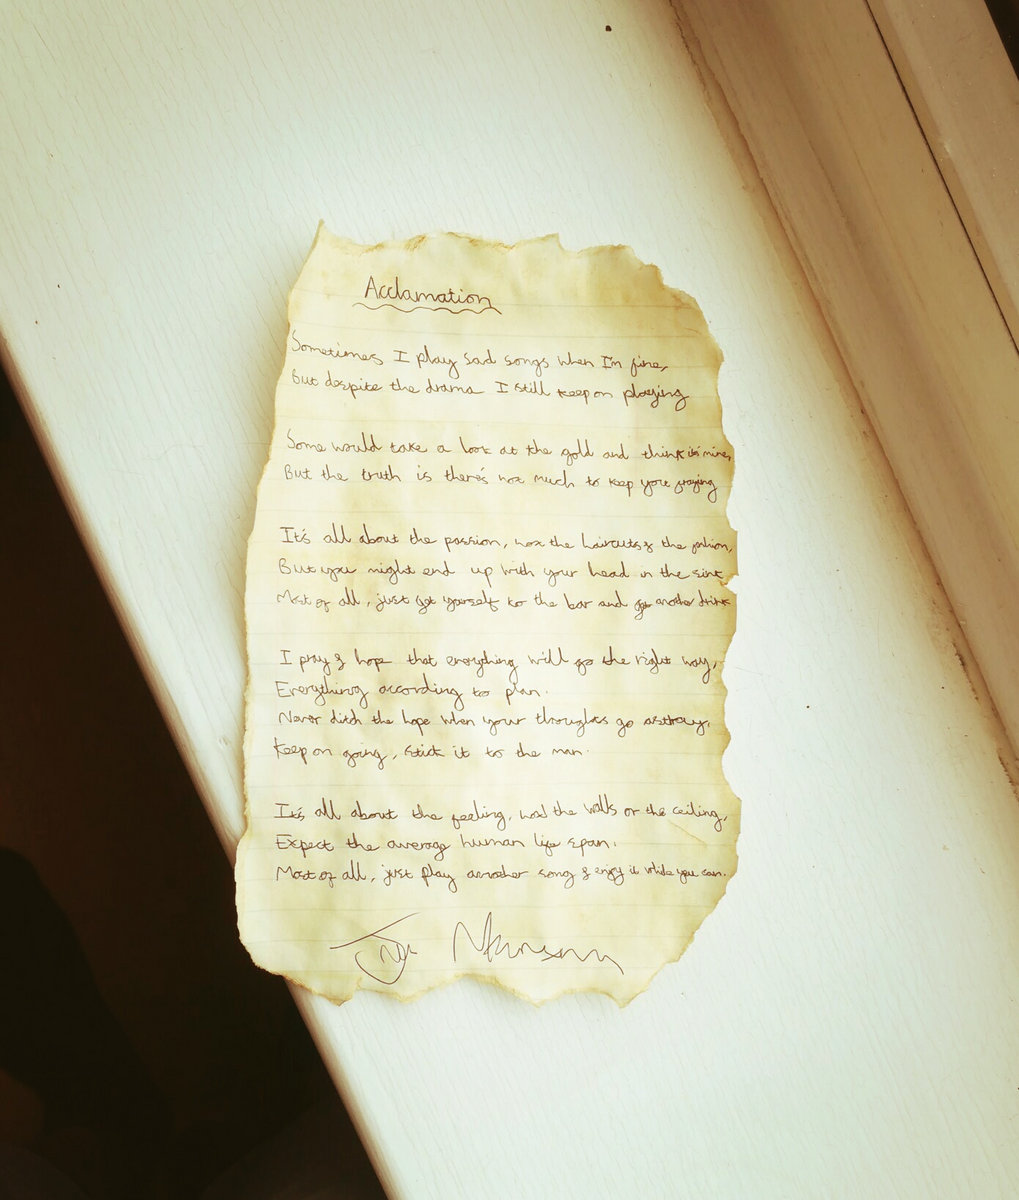 Acclamation
Sometimes I play sad songs when I'm fine,
But despite the drama I still keep on playing
Some would take a look at the gold and think it's mine,
But the truth is there's not much to keep you
It's all about the passion, not the haircuts & the fashion,
But you might end up with your head in the sink
Most of all, just get yourself to the bar and get another drink
I pray & hope that everything will go the right way,
Everything according to plan.
Never ditch the hope when your thoughts go astray,
Keep on going, stick it to the man.
It's all about the feeling, not the walls or the ceiling,
Expect the average human life span.
Most of all, just play another song & enjoy it while you can.